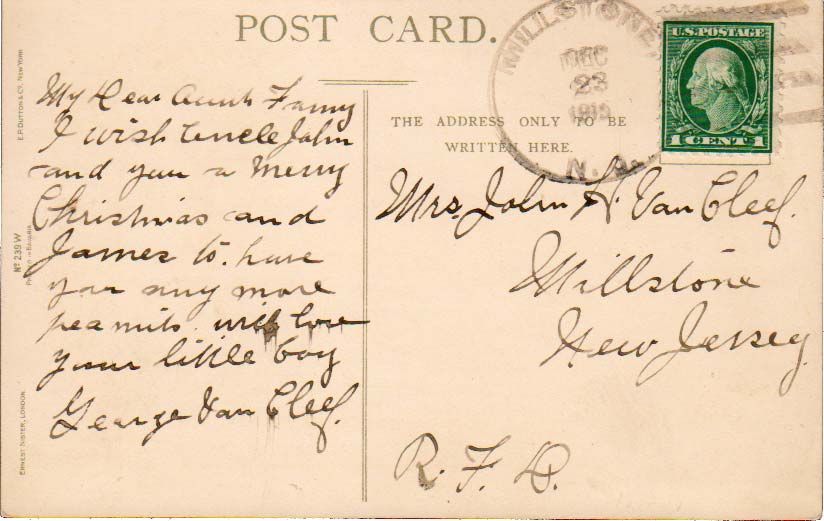 POST CARD.
MILLSTONE
DEC
23
N. J.
U.S. POSTAGE
1 CENT 1
THE ADDRESS ONLY TO BE
WRITTEN HERE.
My Dear Aunt Fanny
I wish Uncle John
and you a Merry
Christmas and
James to. have
you any more
peanuts. with love
your little boy
George Van Cleef.
Mrs. John H. Van Cleef.
Millstone
New Jersey
R. F. D.
E. P. DUTTON & CO. NEW YORK
No 239 W
Printed in Bavaria
ERNEST NISTER, LONDON